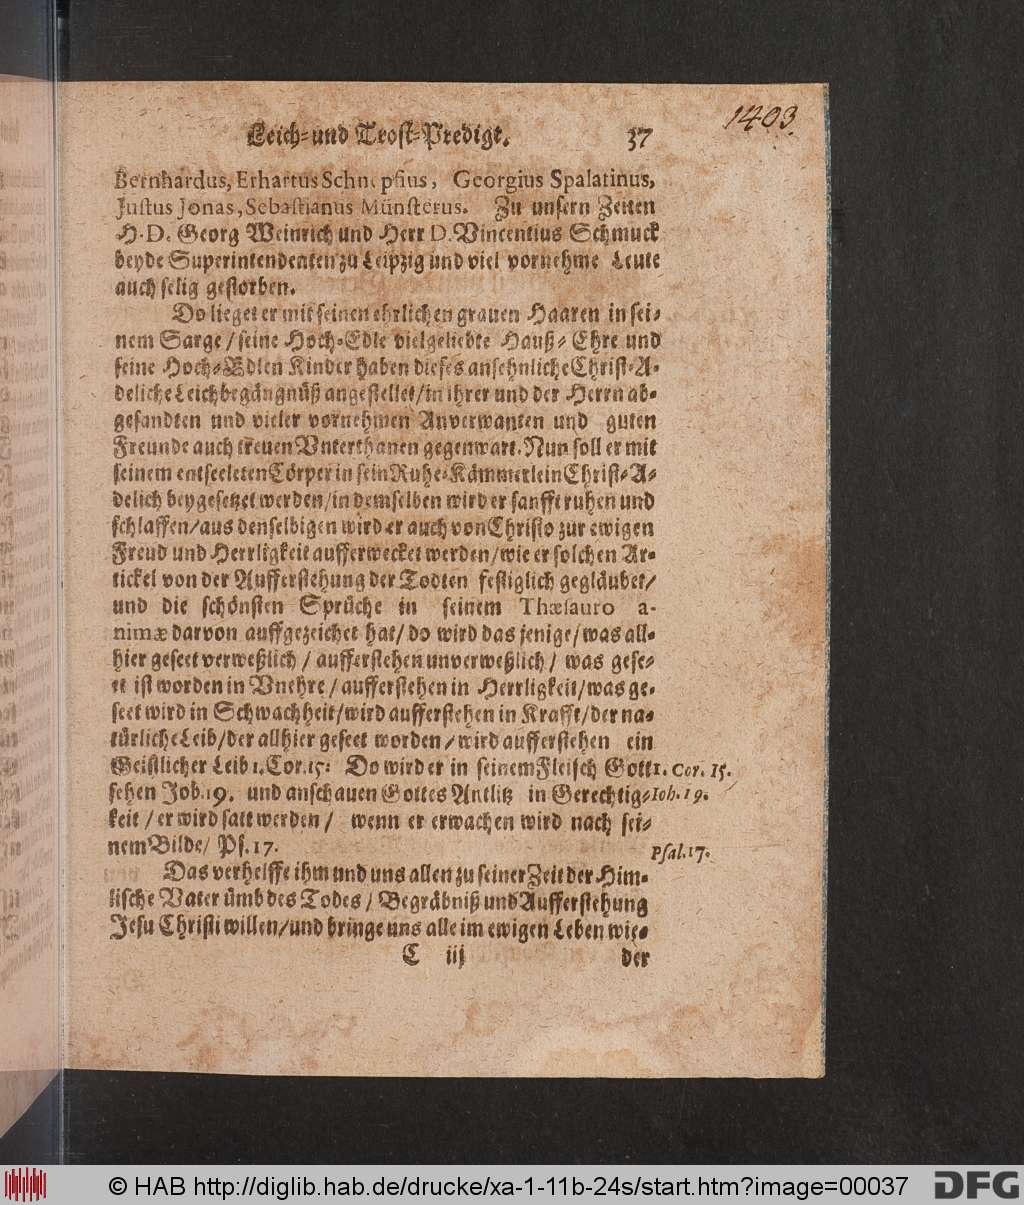 1403.
Leich-und Trost-Predigt. 37
Bernhardus, Erhartus Schnepfius, Georgius Spalatinus,
Justus Jonas, Sebastianus Münsterus. Zu unsern Zeiten
H. D. Georg Weinrich und Herr D. Vincentius Schmuck
beyde Superintendenten zu Leipzig und viel vornehme Leute
auch selig gestorben.
Do lieget er mit seinen ehrlichen grauen Haaren in sei-
nem Sarge/ seine Hoch-Edle vielgeliebte Hauß-Ehre und
seine Hoch-Edlen Kinder haben dieses ansehnliche Christ-A-
deliche Leichbegängnüß angestellet/ in ihrer und der Herrn ab-
gesandten und vieler vornehmen Anverwanten und guten
Freunde auch treuen Vnterthanen gegenwart. Nun soll er mit
seinem entseeleten Cörper in sein Ruhe-Kämmerlein Christ-A-
delich beygesetzet werden/ in demselben wird er sanfft ruhen und
schlaffen/ aus denselbigen wird er auch von Christo zur ewigen
Freud und Herrligkeit aufferwecket werden/ wie er solchen Ar-
tickel von der Aufferstehung der Todten festiglich gegläubet/
und die schönsten Sprüche in seinem Thæsauro a-
nimæ darvon auffgezeichet hat/ do wird das jenige/ was all-
hier geseet verweßlich / aufferstehen unverweßlich / was gese-
et ist worden in Vnehre / aufferstehen in Herrligkeit/ was ge-
seet wird in Schwachheit/ wird aufferstehen in Krafft/ der na-
türliche Leib/ der allhier geseet worden / wird aufferstehen ein
Geistlicher Leib 1. Cor. 15: Do wird er in seinem Fleisch Gott 1. Cor. 15.
sehen Job. 19. und anschauen Gottes Antlitz in Gerechtig- Ioh. 19.
keit / er wird satt werden / wenn er erwachen wird nach sei-
nem Bilde/ Ps. 17. Psal. 17.
Das verhelffe ihm und uns allen zu seiner Zeit der Him-
lische Vater ümb des Todes / Begräbniß und Aufferstehung
Jesu Christi willen/ und bringe uns alle im ewigen Leben wie-
C iij der
© HAB http://diglib.hab.de/drucke/xa-1-11b-24s/start.htm?image=00037
DFG